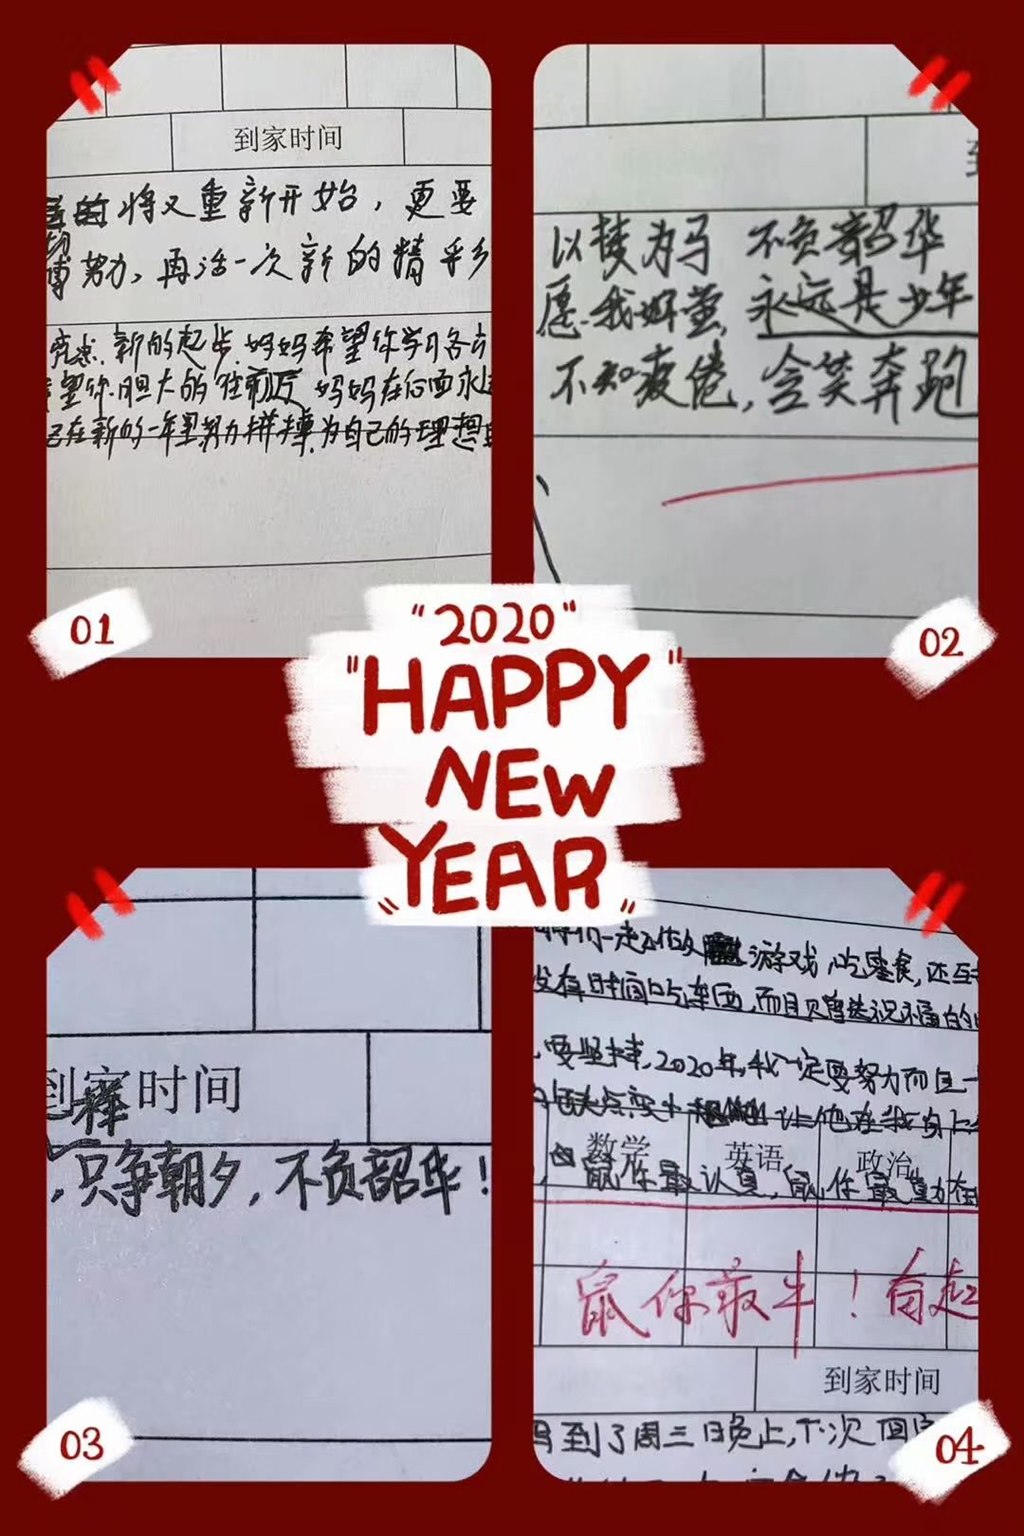 到家时间
将又重新开始，更要
努力，再活一次新的精彩
新的起步，妈妈希望你学习各
望你胆大的往前迈 妈妈在后面永远
己在新的一年里努力拼搏，为自己的理想
01
以梦为马 不负韶华
愿我如萤，永远是少年
不知疲倦，含笑奔跑
02
"2020"
"HAPPY"
NEW
"YEAR"
到家时间
，只争朝夕，不负韶华！
03
游戏，吃零食，还互
没有时间吃东西，而且
要坚持，2020年，我一定要努力而且一
让他在我身上
数学
英语
政治
鼠你最认真，鼠你最
鼠你最牛！有
到家时间
到了周三日晚上，下次回
04